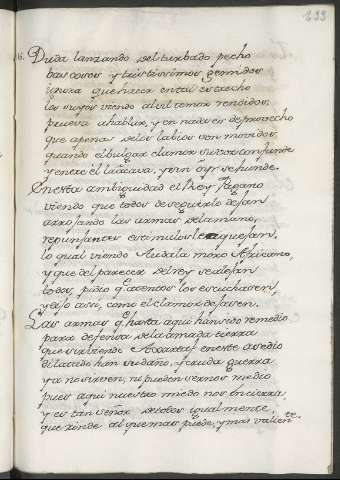 133
16. Duda lanzando del turbado pecho
bascosos y tristissimos gemidos
ignora que hacer en tal estrecho
los suyos viendo al vil temor rendidos,
prueva a hablar, y en nada es de provecho
que apenas de los labios son movidos,
quando el bulgar clamor su voz confunde
y entre el la acava, y sin oyr se hunde.
En esta ambiguidad el Rey Pagano
viendo que todos de seguirlo dejan
arrojando las armas de la mano,
repunjantes estimulos le aquejan,
lo qual viendo Audala moro Africano,
y que del parecer del rey se alejan
todos, pidio q atentos los escuchasen,
y dijo assi, como el clamor dejasen.
Las armas q hasta aqui han sido remedio
para defensa de la amada tierra
que sirviendo en este asedio
dilatado han su daño, y cruda guerra
ya no sirven, ni pueden sernos medio
pues aqui nuestro miedo nos encierra,
y es tan señor de todos igualmente,
que rinde al que mas puede, y mas valiente.